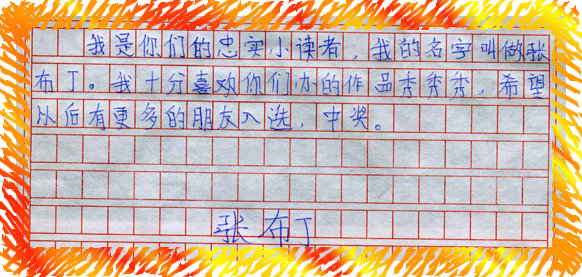 我是你们的忠实小读者，我的名字叫做张
布丁。我十分喜欢你们办的作品秀秀秀，希望
以后有更多的朋友入选，中奖。
张布丁